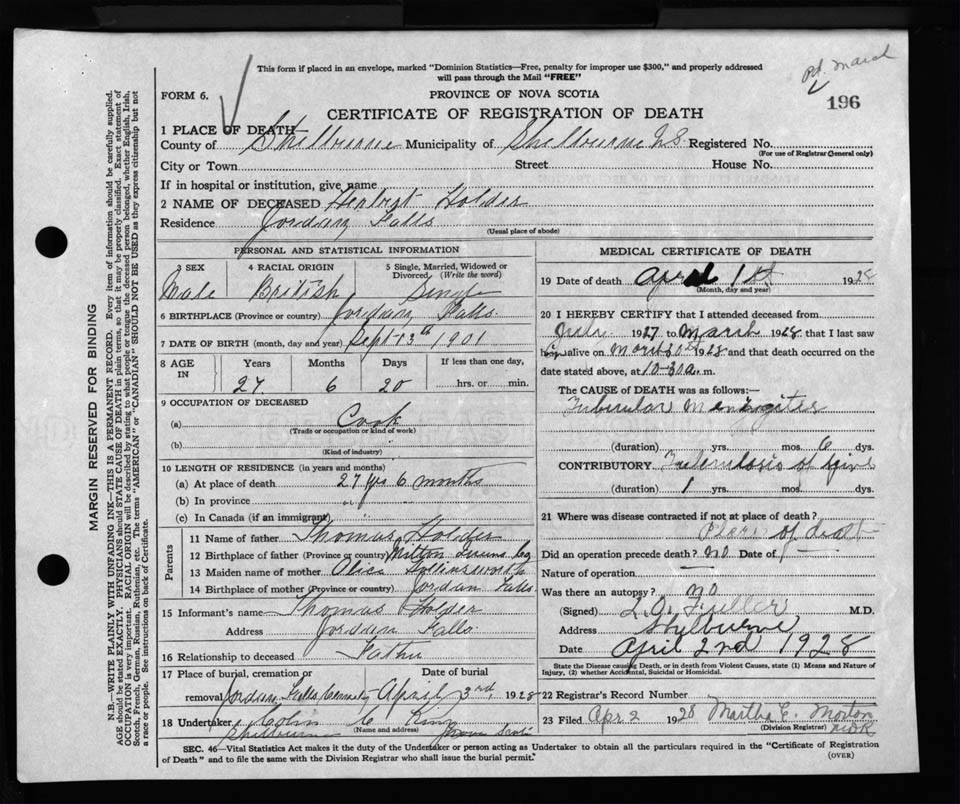 This form if placed in an envelope, marked "Dominion Statistics—Free, penalty for improper use $300," and properly addressed
will pass through the Mail "FREE"
Pd. March
196
FORM 6.
PROVINCE OF NOVA SCOTIA
CERTIFICATE OF REGISTRATION OF DEATH
1 PLACE OF DEATH
County of Shelburne Municipality of Shelburne N.S. Registered No.
(For use of Registrar General only)
City or Town Street House No.
If in hospital or institution, give name
2 NAME OF DECEASED Herbert Holder
Residence Jordan Falls
(Usual place of abode)
PERSONAL AND STATISTICAL INFORMATION
3 SEX 4 RACIAL ORIGIN 5 Single, Married, Widowed or Divorced (Write the word)
Male British Single
6 BIRTHPLACE (Province or country) Jordan Falls.
7 DATE OF BIRTH (month, day and year) Sept 13th 1901
8 AGE IN Years Months Days If less than one day,
27 6 20 hrs. or min.
9 OCCUPATION OF DECEASED
(a) Cook
(Trade or occupation or kind of work)
(b)
(Kind of industry)
10 LENGTH OF RESIDENCE (in years and months)
(a) At place of death 27 yrs 6 months
(b) In province
(c) In Canada (if an immigrant)
Parents
11 Name of father Thomas Holder
12 Birthplace of father (Province or country) Milton Queens Co
13 Maiden name of mother Alice Hollinsworth
14 Birthplace of mother (Province or country) Jordan Falls
15 Informant's name Thomas Holder
Address Jordan Falls.
16 Relationship to deceased Father
17 Place of burial, cremation or Date of burial
removal Jordan Falls Cemetery April 3rd, 1928
18 Undertaker Colin C King
(Name and address)
Shelburne Nova Scotia
MEDICAL CERTIFICATE OF DEATH
19 Date of death April 1st 1928
(Month, day and year)
20 I HEREBY CERTIFY that I attended deceased from
1927 to March 1928 that I last saw
alive on March 30th 1928 and that death occurred on
date stated above, at 10-30 a.m.
The CAUSE OF DEATH was as follows:—
Tubercular Meningites
(duration) yrs. mos. 6 dys.
CONTRIBUTORY Tuberculosis of Spine
(duration) 1 yrs. mos. dys.
21 Where was disease contracted if not at place of death?
Place of death
Did an operation precede death? no. Date of —
Nature of operation —
Was there an autopsy? no
(Signed) L.O. Fuller M.D.
Address Shelburne
Date April 2nd 1928
State the Disease causing Death, or in death from Violent Causes, state (1) Means and Nature of
Injury, (2) whether Accidental, Suicidal or Homicidal.
22 Registrar's Record Number
23 Filed Apr 2 1928 Martha C. Morton
(Division Registrar)
SEC. 46—Vital Statistics Act makes it the duty of the Undertaker or person acting as Undertaker to obtain all the particulars required in the "Certificate of Registration
of Death" and to file the same with the Division Registrar who shall issue the burial permit.
(OVER)
MARGIN RESERVED FOR BINDING
N.B.—WRITE PLAINLY WITH UNFADING INK—THIS IS A PERMANENT RECORD. Every item of information should be carefully supplied.
AGE should be stated EXACTLY. PHYSICIANS should STATE CAUSE OF DEATH in plain terms, so that it may be properly classified. Exact statement of
OCCUPATION is very important. RACIAL ORIGIN will be described by stating to what people or tongue the deceased person belonged, whether English, Irish,
Scotch, French, German, Russian, Ruthenian, etc. The terms "AMERICAN" or "CANADIAN" SHOULD NOT BE USED as they express citizenship but not
a race or people. See instructions on back of Certificate.